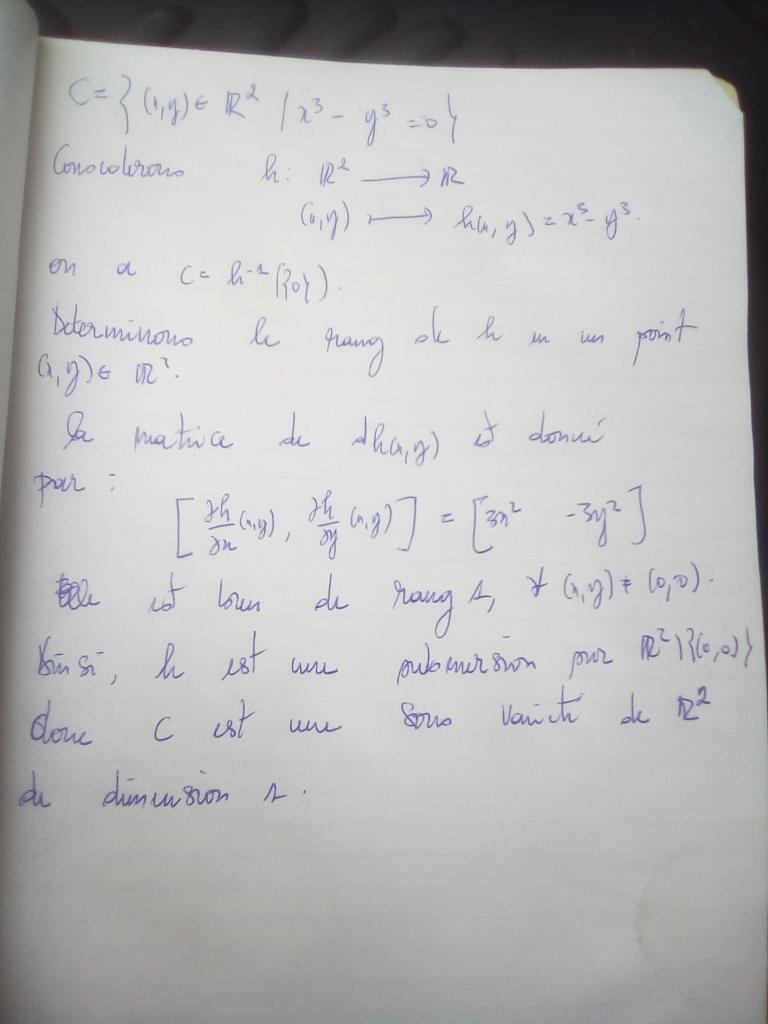 C = { (x,y) ∈ ℝ² / x³ - y³ = 0 }
Considerons h: ℝ² ⟶ ℝ
(x,y) ⟼ h(x,y) = x³ - y³.
on a C = h⁻¹({0}).
Determinons le rang de h en un point
(x,y) ∈ ℝ².
la matrice de dh(x,y) est donné
par :
[ ∂h/∂x (x,y), ∂h/∂y (x,y) ] = [ 3x² -3y² ]
elle est bien de rang 1, ∀ (x,y) ≠ (0,0).
Ainsi, h est une submersion sur ℝ² \ {(0,0)}
donc C est une sous varieté de ℝ²
de dimension 1.